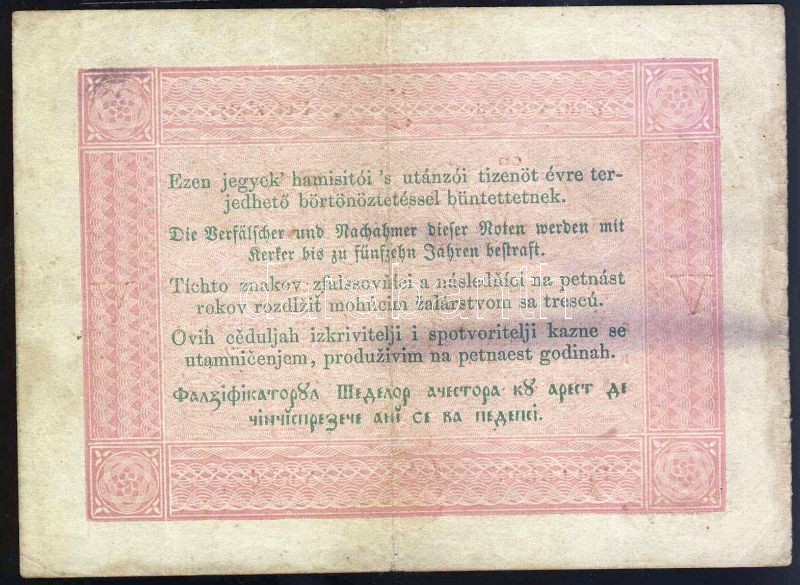 Ezen jegyek' hamisitói 's utánzói tizenöt évre ter-
jedhető börtönöztetéssel büntettetnek.
Die Verfälscher und Nachahmer dieser Noten werden mit
Kerker bis zu fünfzehn Jahren bestraft.
Tíchto znakov zfalssovňíci a následňíci na petnást
rokov rozdlžiť mohúcim žalárstvom sa trescú.
V V
Ovih cěduljah izkrivitelji i spotvoritelji kazne se
utamničenjem, produživim na petnaest godinah.
Фалзіфікаторꙋл Шеделор ачестора кꙋ арест де
чінчіспрезече ані се ва педепсі.